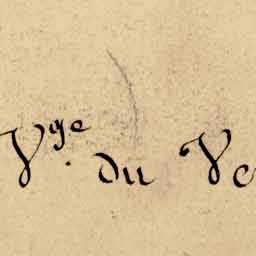 Vge du Ve